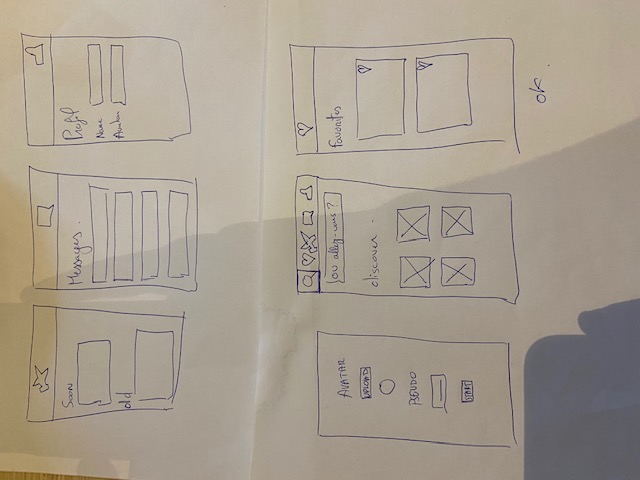 Soon
old
Messages.
Profil
Name
Avatar
AVATAR
UPLOAD
PSEUDO
START
où allez-vous ?
discover.
Favorites
ok.